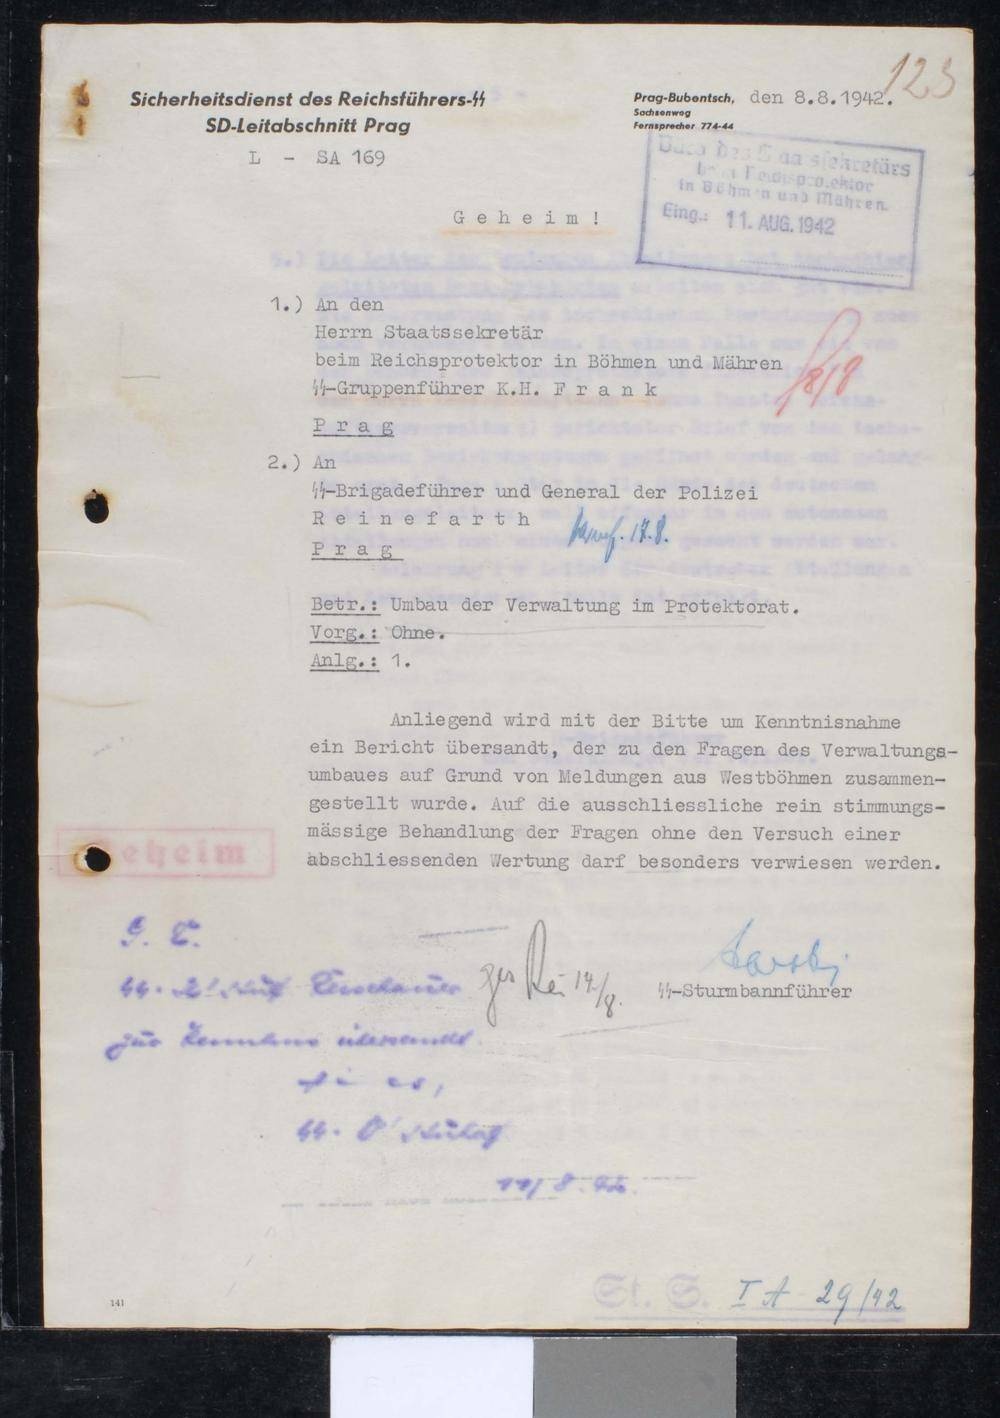 123
Sicherheitsdienst des Reichsführers-SS
SD-Leitabschnitt Prag
L - SA 169
Prag-Bubentsch, den 8.8.1942.
Sachsenweg
Fernsprecher 774-44
Büro des Staatssekretärs
beim Reichsprotektor
in Böhmen und Mähren.
Eing.: 11. AUG. 1942
Geheim!
1.) An den
Herrn Staatssekretär
beim Reichsprotektor in Böhmen und Mähren
SS-Gruppenführer K.H. Frank
Prag
18/8
2.) An
SS-Brigadeführer und General der Polizei
Reinefarth
17.8.
Prag
Betr.: Umbau der Verwaltung im Protektorat.
Vorg.: Ohne.
Anlg.: 1.
Anliegend wird mit der Bitte um Kenntnisnahme
ein Bericht übersandt, der zu den Fragen des Verwaltungs-
umbaues auf Grund von Meldungen aus Westböhmen zusammen-
gestellt wurde. Auf die ausschliessliche rein stimmungs-
mässige Behandlung der Fragen ohne den Versuch einer
abschliessenden Wertung darf besonders verwiesen werden.
Geheim
ges Rei 14/8.
SS-Sturmbannführer
zur Kenntnis übersandt.
11/8.42.
St. S. I A - 29/42
141